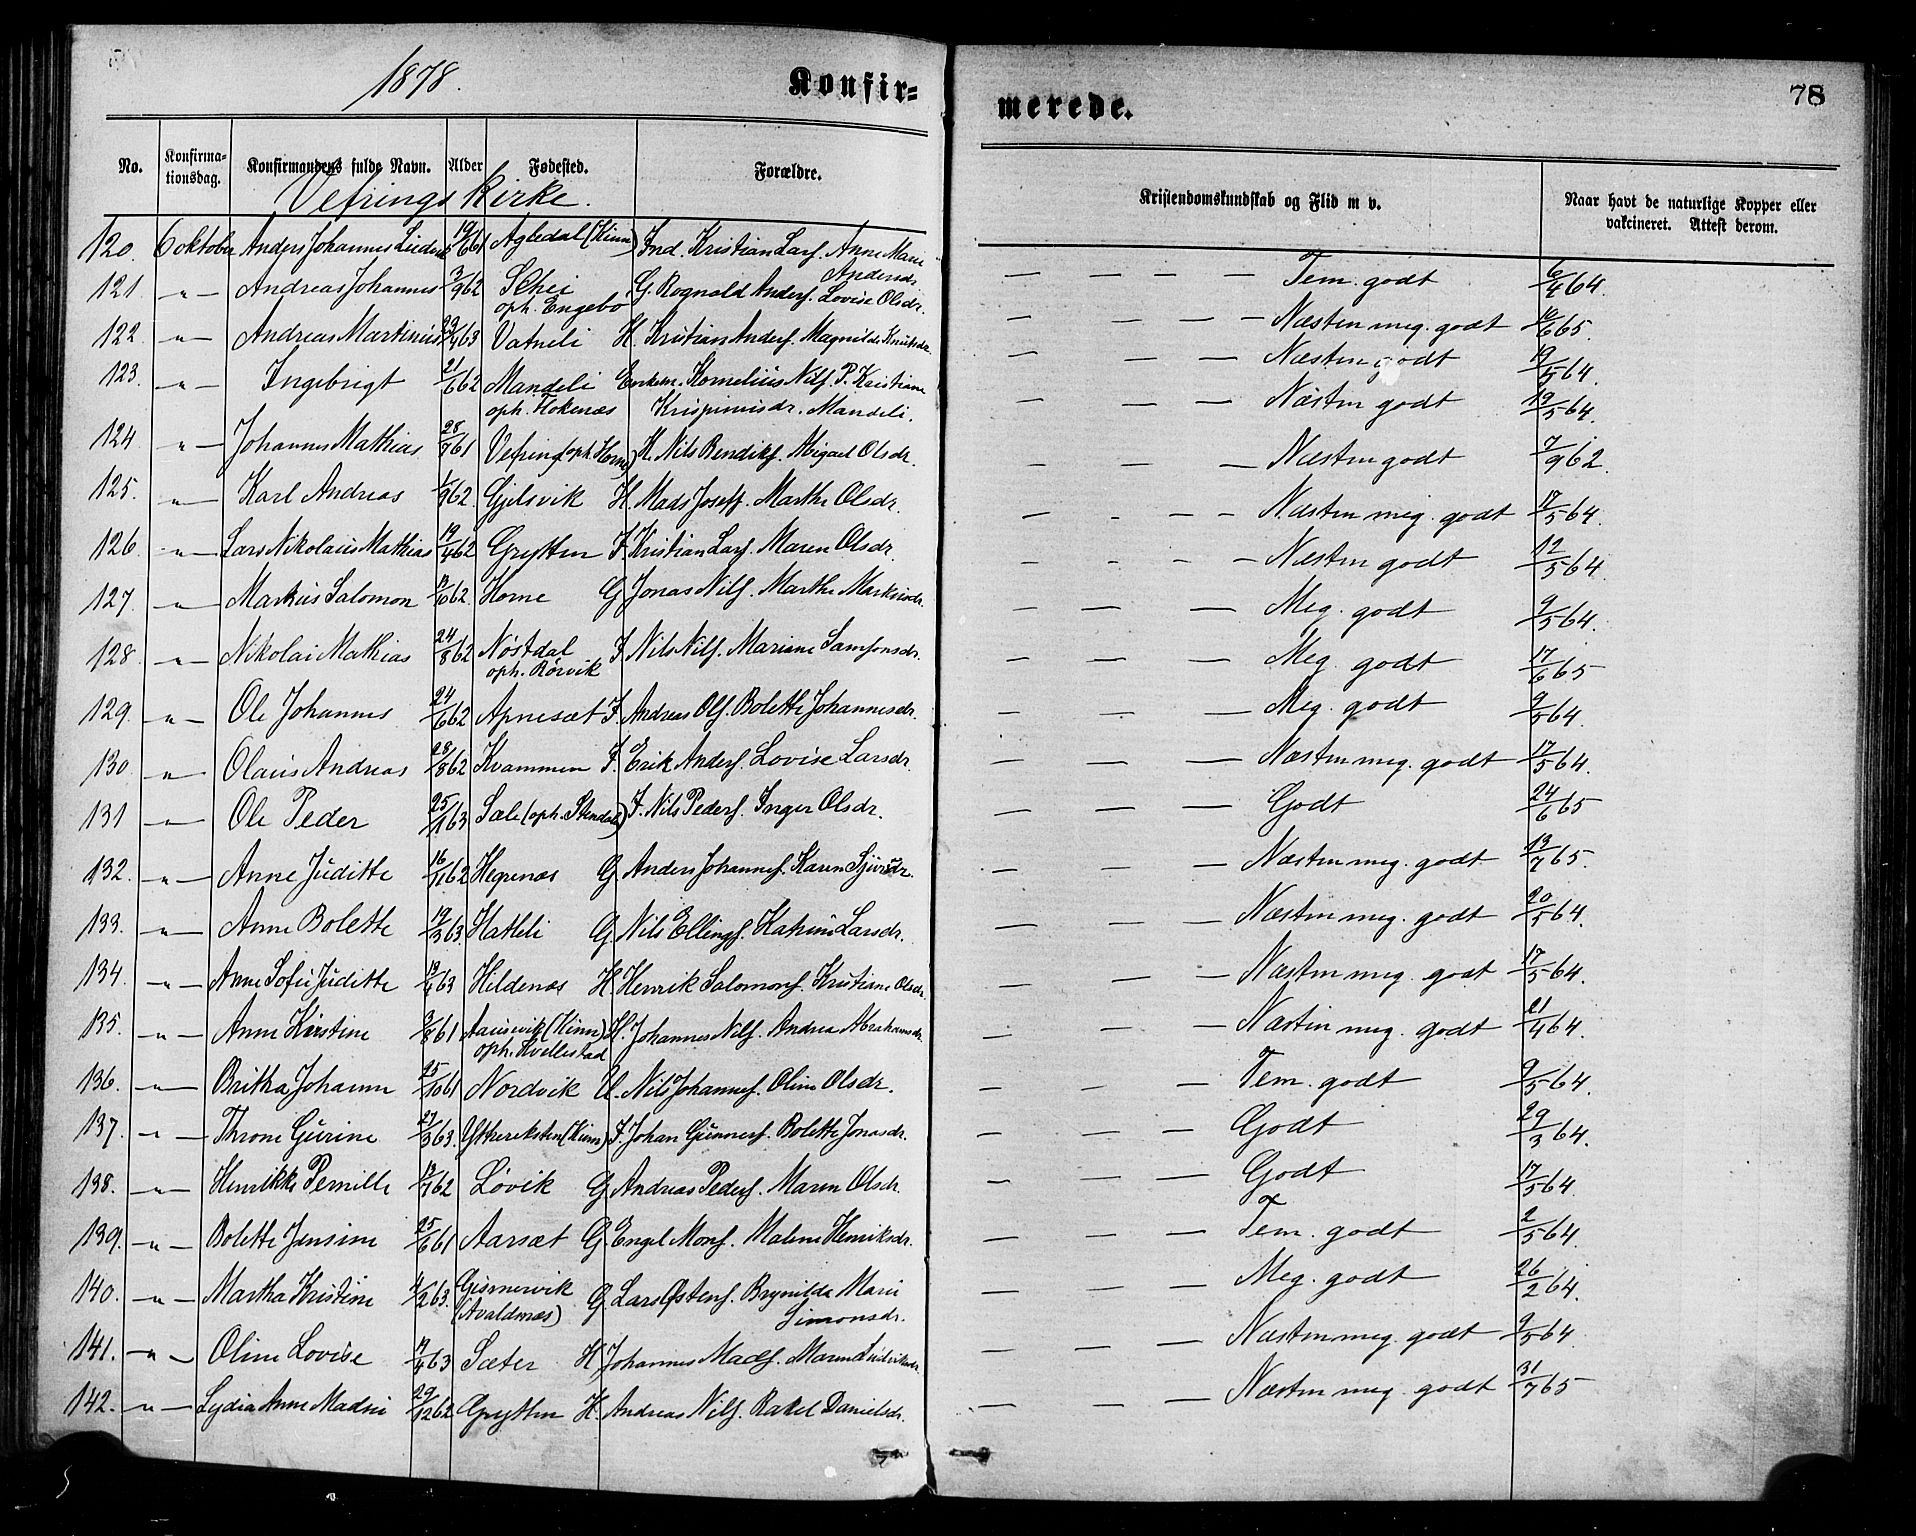 1878.
Konfir=
merede.
78
No. Konfirma-tionsdag. Konfirmandens fulde Navn. Alder Fødested. Forældre. Kristendomskundskab og Flid m v. Naar havt de naturlige Kopper eller vakcineret. Attest derom.
Vefrings kirke.
120. 6 oktober Anders Johannes 19/ 61 Agledal (Kinn) Ind. Kristian Larf. Anne Marie Andersdr. — — — — Tem. godt 6/4 64.
121. „ Andreas Johannes 3/9 62 Schei oph. Engebø G. Rognald Andersf. Lovise Olsdr. — — — — Næsten meg. godt 10/6 65.
122. „ Andreas Martinius 63 Vatneli H. Kristian Andersf. Magnilde Knutsdr. — — — Næsten godt 19/5 64.
123. „ Ingebrigt 21/6 62 Mandeli oph. Flokenæs Enkem. Kornelius Nilsf. P. Kristiane Krispinusdr. Mandeli. — — — Næsten godt 19/5 64.
124 „ Johannes Mathias 28/7 61 Vefring (oph. Horne) H. Nils Bendiksf. Abigael Olsdr. — — — Næsten godt 7/9 62.
125. „ Karl Andreas 1/9 62. Gjelsvik H. Mads Joseff. Marthe Olsdr. — - — — Næsten meg. godt 17/5 64.
126. „ Lars Nikolaus Mathias 19/4 62 Grytten F. Kristian Larsf. Maren Olsdr. - - - — Næsten godt 12/5 64.
127. „ Markus Salomon 62. Horne G. Jonas Nilsf. Marthe Markusdr. — — — Meg. godt 9/5 64.
128. „ Nikolai Mathias 24/8 62 Nøstdal oph. Rørvik F. Nils Nilsf. Mariane Samsonsdr. — — — Meg. godt 17/6 65
129. „ Ole Johannes 24/6 62 Apnesæt F. Andreas Olsf. Bolette Johannesdr. — — — Meg. godt 9/5 64.
130. „ Olaus Andreas 28/8 62 Kvammen F. Erik Andersf. Lovise Larsdr. — — — Næsten meg. godt 17/5 64.
131 „ Ole Peder 25/1 63 Sæle (oph. Stendal) F. Nils Pedersf. Inger Olsdr. — — — Godt 24/6 65
132. „ Anne Juditte 16/11 62 Hegrenæs G. Anders Johannesf. Karen Sjursdr. — — — Næsten meg. godt 13/7 65.
133. „ Anne Bolette 19/3 63 Hatleli G. Nils Ellingsf. Katrine Larsdr. — — — Næsten meg. godt 20/5 64.
134. „ Anne Sofie Juditte 13/4 63 Hildenæs H. Henrik Salomonsf. Kristiane Olsdr. — — — Næsten meg. godt 17/5 64.
135. „ Anne Kirstine 3/8 61 Aarsevik (Kinn) oph. Kvellestad H. Johannes Nilsf. Andrea Abrahamsdr. — — — Næsten meg. godt 21/4 64.
136. „ Britha Johanne 25/10 61 Nordvik U. Nils Johannesf. Oline Olsdr. — — — Tem. godt 9/5 64.
137. „ Throne Gurine 27/3 63. Yttereksten (Kinn) F. Johan Gunnersf. Bolette Jonasdr. — — — Godt 29/3 64.
138. „ Henrikke Pernille 13/7 62 Løvik G. Andreas Pedersf. Maren Olsdr. — — — Godt 17/5 64.
139. „ Bolette Jensine 25/6 61 Aarsæt G. Engel Monsf. Malene Henriksdr. — — — Tem. godt 2/5 64.
140. „ Martha Kristine 4/2 63. Gismervik (Avaldsnæs) G. Lars Østensf. Brynilda Marie Simonsdr. — — — Meg. godt 26/2 64.
141. „ Oline Lovise 63 Sæter H. Johannes Madsf. Maren Ludviksdr. — — — Næsten meg. godt 9/5 64.
142. „ Lydia Anne Madsine 29/12 62 Grytten H. Andreas Nilsf. Rakel Danielsdr. — — — Næsten meg. godt 31/7 65